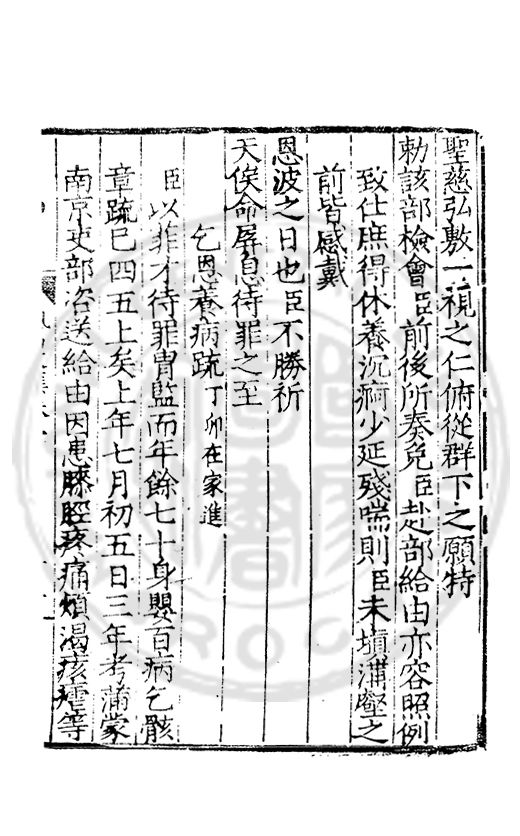 聖慈弘敷一視之仁俯從群下之願特
勑該部檢會臣前後所奏免臣赴部給由亦容照例
致仕庶得休養沉痾少延殘喘則臣未塡溝壑之
前皆感戴
恩波之日也臣不勝祈
天俟命屏息待罪之至
乞恩養病疏丁卯在家進
臣以菲才待罪胄監而年餘七十身嬰百病乞骸
章疏巳四五上矣上年七月初五日三年考蒲蒙
南京吏部咨送給由因患膝脛疼痛煩渴痰嗽等